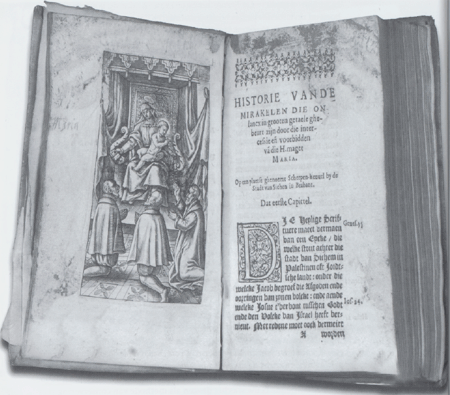 HISTORIE VANDE
MIRAKELEN DIE ON-
ghe-
beurt zijn door die inter-
cessie en voorbidden
van die H. Maget
MARIA.
Op een plaetse genaemt Scherpen-heuvel by de
Stadt van Sichen in Brabant.
Dat eerste Capittel.
DIE Heylige Scrif-
tuere maect vermaen
van een Eycke, die
welcke stont achter die
stadt van Sichem in
Palestinen oft Joid-
sche landt: onder die
welcke Jacob begroef die Afgoden ende
oorringen van zijnen volcke: ende aende
welcke Josue t'verbont tusschen Gode
ende den Volcke van Israel heeft ver-
nieut. Met redene moet oock vermeert
A worden
Genes. 35
Jos. 24.